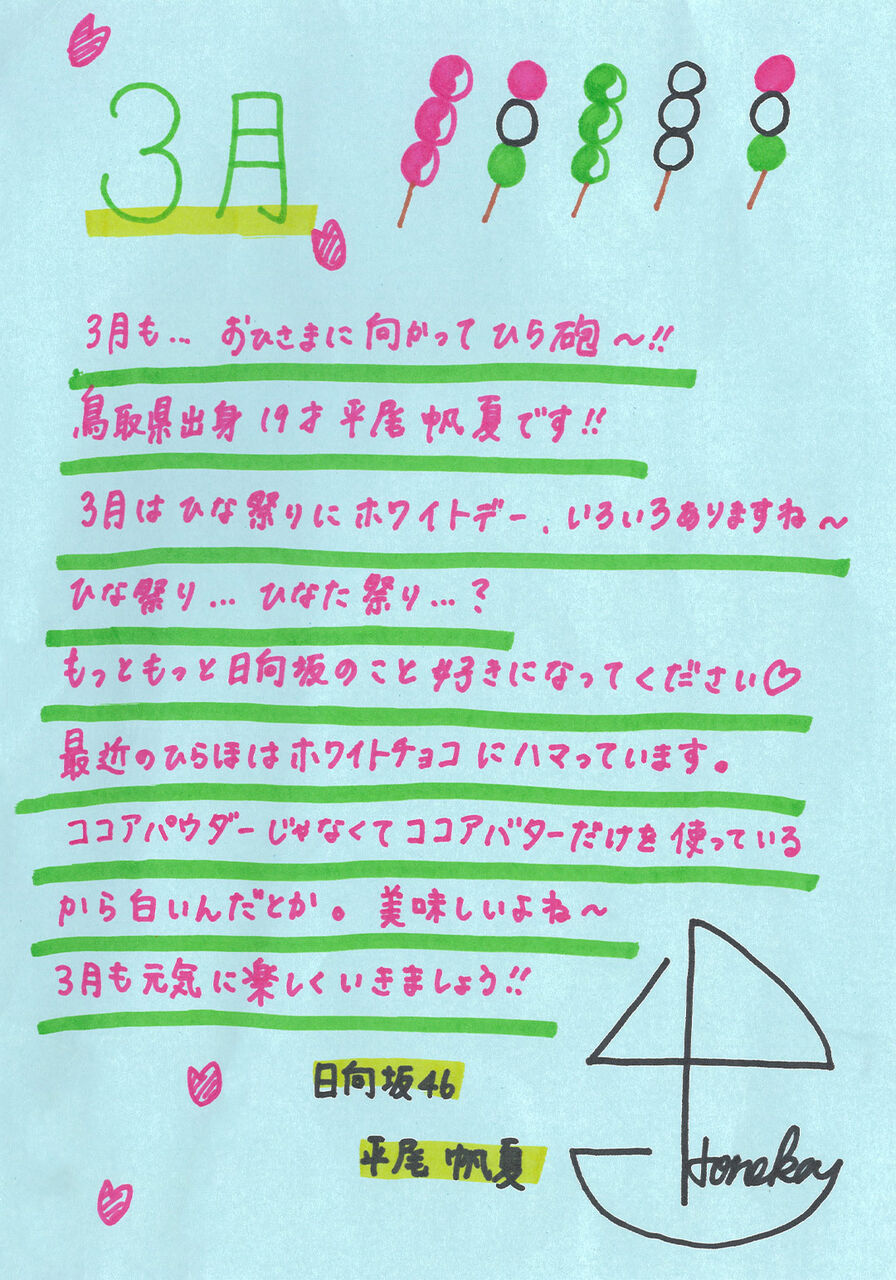 3月
3月も… おひさまに向かって ひら砲～!!
鳥取県出身 19才 平尾 帆夏です!!
3月は ひな祭りに ホワイトデー、いろいろありますね～
ひな祭り… ひなた祭り…?
もっともっと日向坂のこと好きになってください♡
最近のひらほはホワイトチョコにハマっています。
ココアパウダーじゃなくてココアバターだけを使っている
から白いんだとか。美味しいよね～
3月も元気に楽しくいきましょう!!
日向坂46
平尾 帆夏